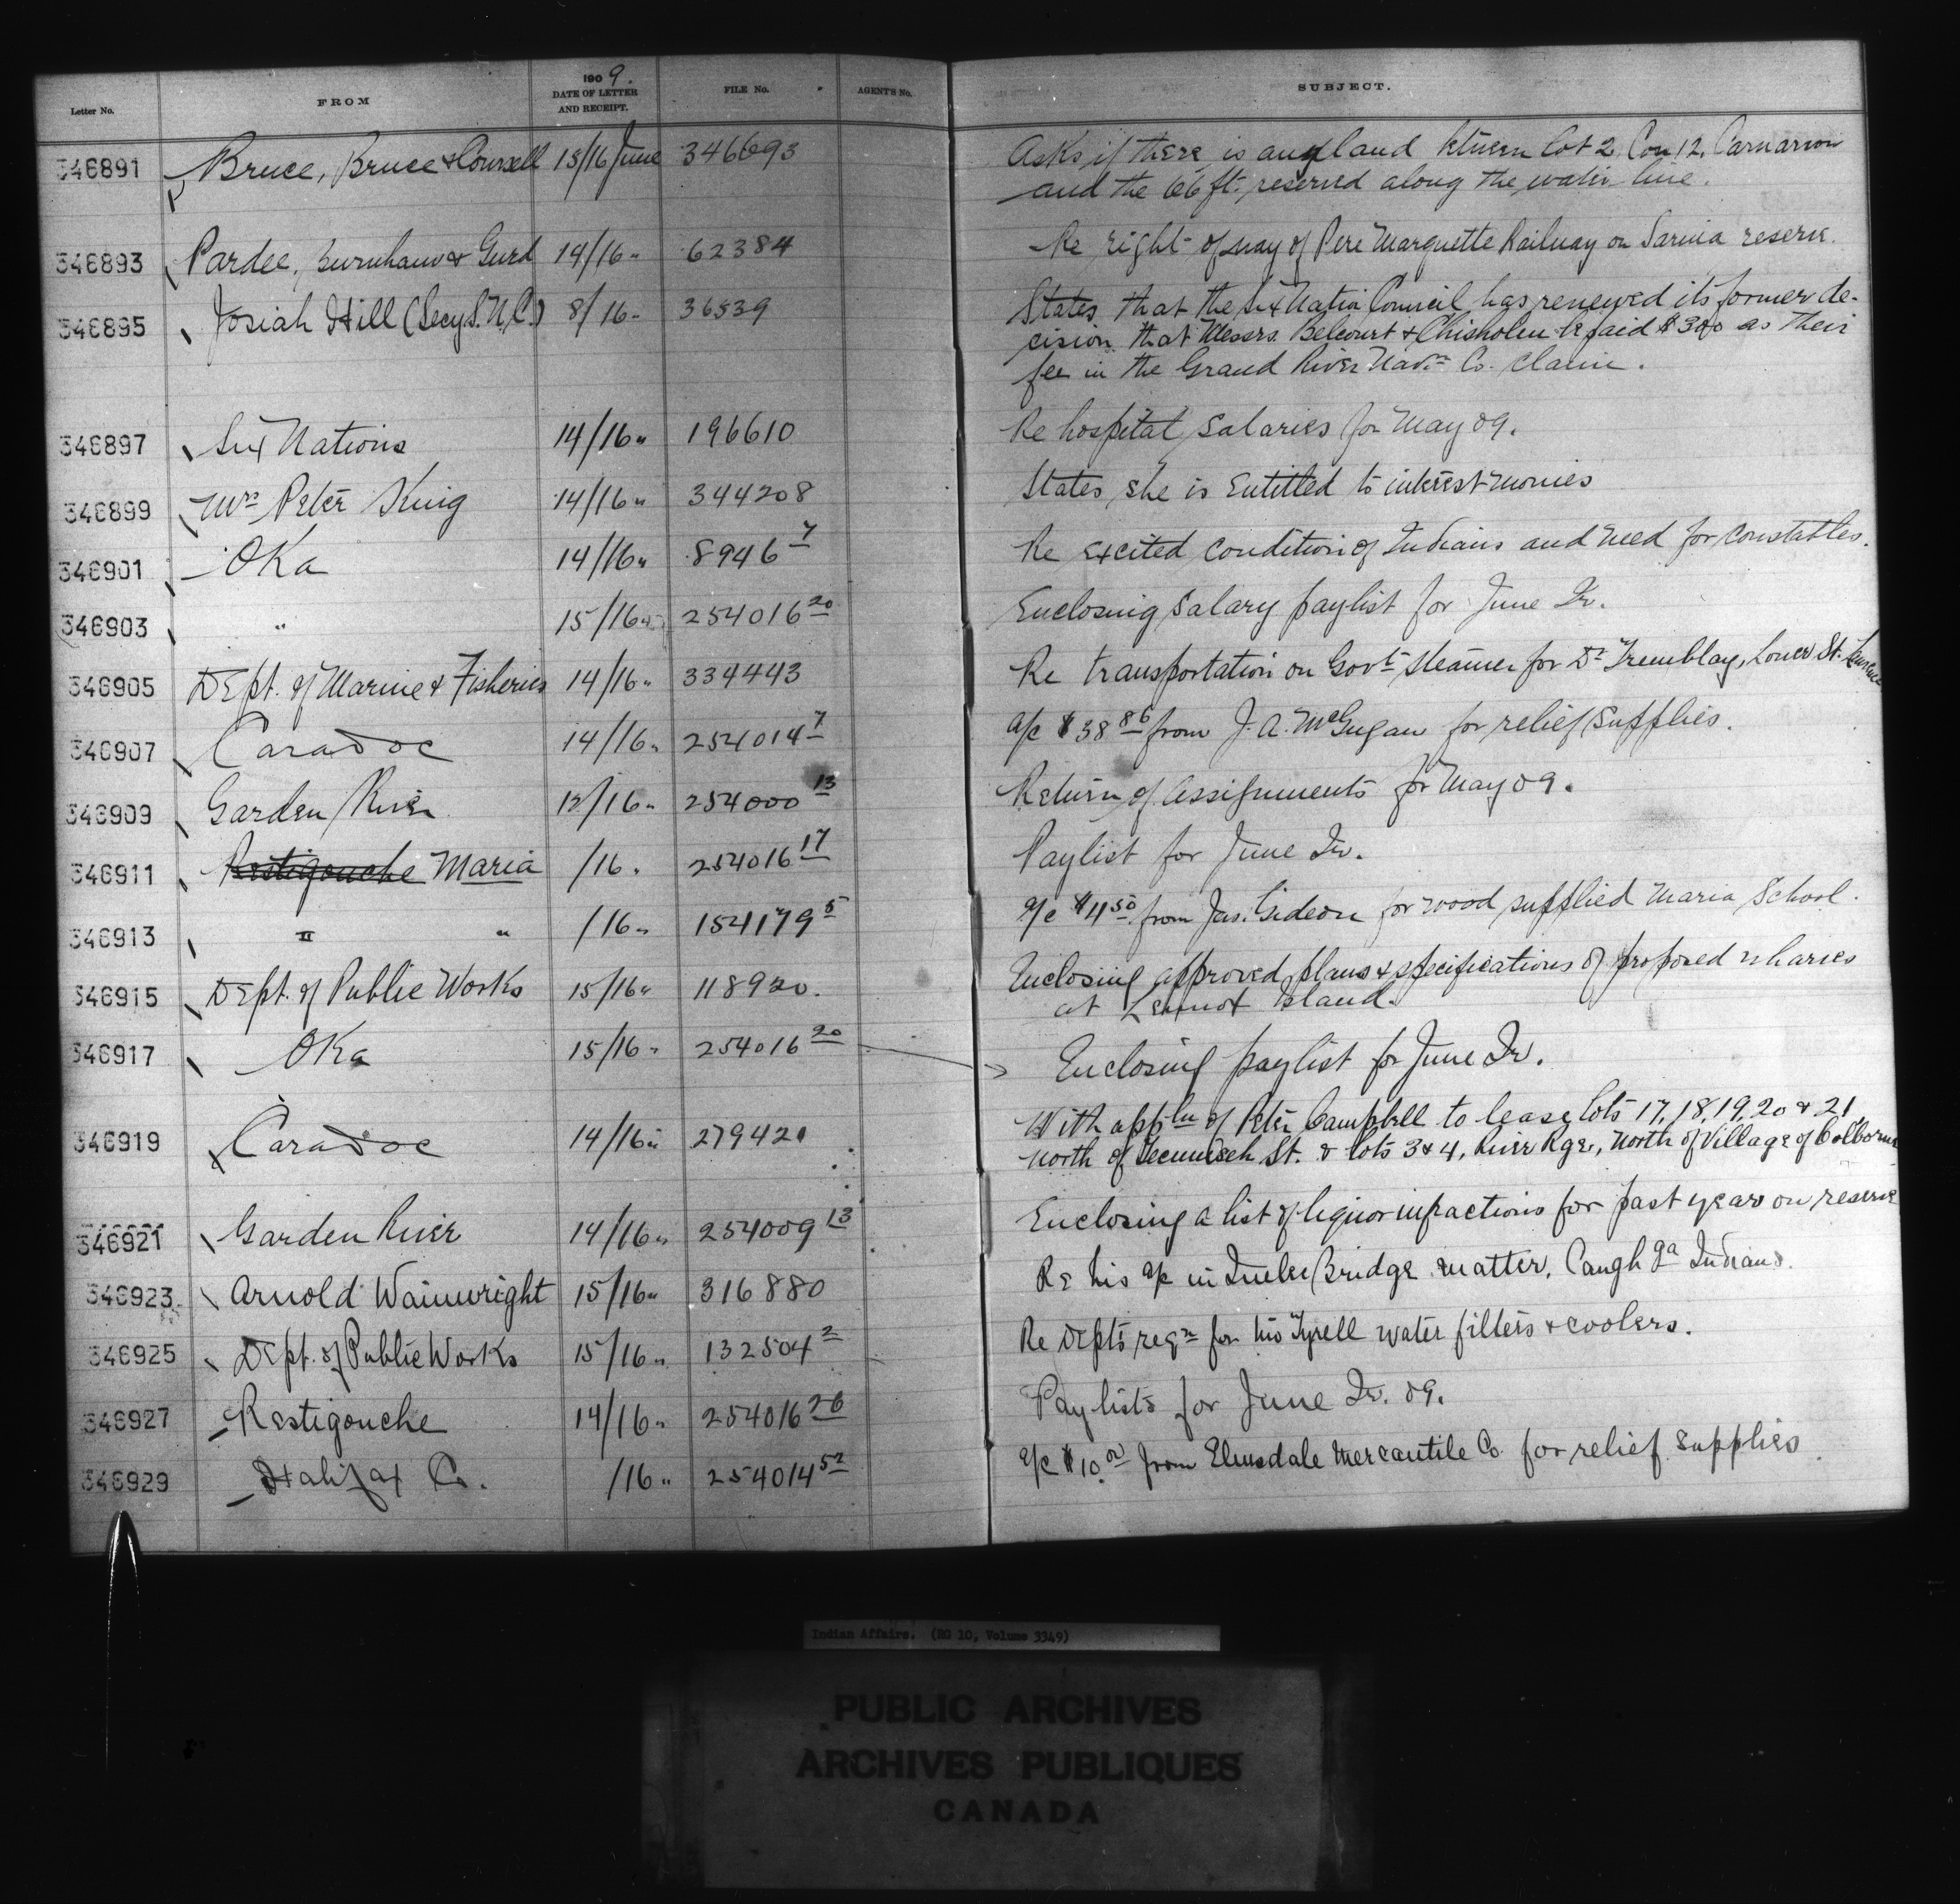 Letter No. FROM 1909. DATE OF LETTER AND RECEIPT. FILE No. AGENT'S No. SUBJECT.
346891 Bruce, Bruce & Counsell 15/16 June 346693 Asks if there is any land between lot 2, Con 12, Carnarvon
and the 66 ft. reserved along the water line.
346893 Pardee, Burnham & Gurd 14/16 " 62384 Re right of way of Pere Marquette Railway on Sarnia reserve.
346895 Josiah Hill (Secy S.N.C.) 8/16 " 36539 States that the Six Nation Council has renewed its former de-
cision that Messrs. Belcourt & Chisholm be paid $300 as their
fee in the Grand River Navn Co. claim.
346897 Six Nations 14/16 " 196610 Re hospital salaries for May 09.
346899 Mrs Peter King 14/16 " 344208 States she is entitled to interest monies
346901 Oka 14/16 " 8946 7 Re excited condition of Indians and need for constables.
346903 " 15/16 " 254016 20 Enclosing salary paylist for June Qr.
346905 Dept. of Marine & Fisheries 14/16 " 334443 Re transportation on Govt steamer for Dr Tremblay, Lower St. Lawrence
346907 Caradoc 14/16 " 254014 7 a/c $38 86 from J. A. McGugan for relief supplies.
346909 Garden River 12/16 " 254000 13 Return of assignments for May 09.
346911 Restigouche Maria /16 " 254016 17 Paylist for June Qr.
346913 " " /16 " 154179 5 a/c $4 50 from Jas. Gideon for wood supplied Maria School.
346915 Dept. of Public Works 15/16 " 118920. Enclosing approved plans & specifications of proposed wharves
at Lennox Island.
346917 Oka 15/16 " 254016 20 Enclosing paylist for June Qr.
346919 Caradoc 14/16 " 279421 With appln of Peter Campbell to lease lots 17, 18, 19, 20 & 21
north of Tecumseh St. & lots 3 & 4, River Rge, North of Village of Colborne
346921 Garden River 14/16 " 254009 13 Enclosing a list of liquor infractions for past year on reserve
346923 Arnold Wainwright 15/16 " 316880 Re his a/c in Bridge matter, Caughga Indians.
346925 Dept. of Public Works 15/16 " 132504 2 Re Depts reqn for two Tyrell water filters & coolers.
346927 Restigouche 14/16 " 254016 26 Paylists for June Qr. 09.
346929 Halifax Co. /16 " 254014 52 a/c $10.00 from Elmsdale Mercantile Co. for relief supplies
Indian Affairs. (RG 10, Volume 3349)
PUBLIC ARCHIVES
ARCHIVES PUBLIQUES
CANADA